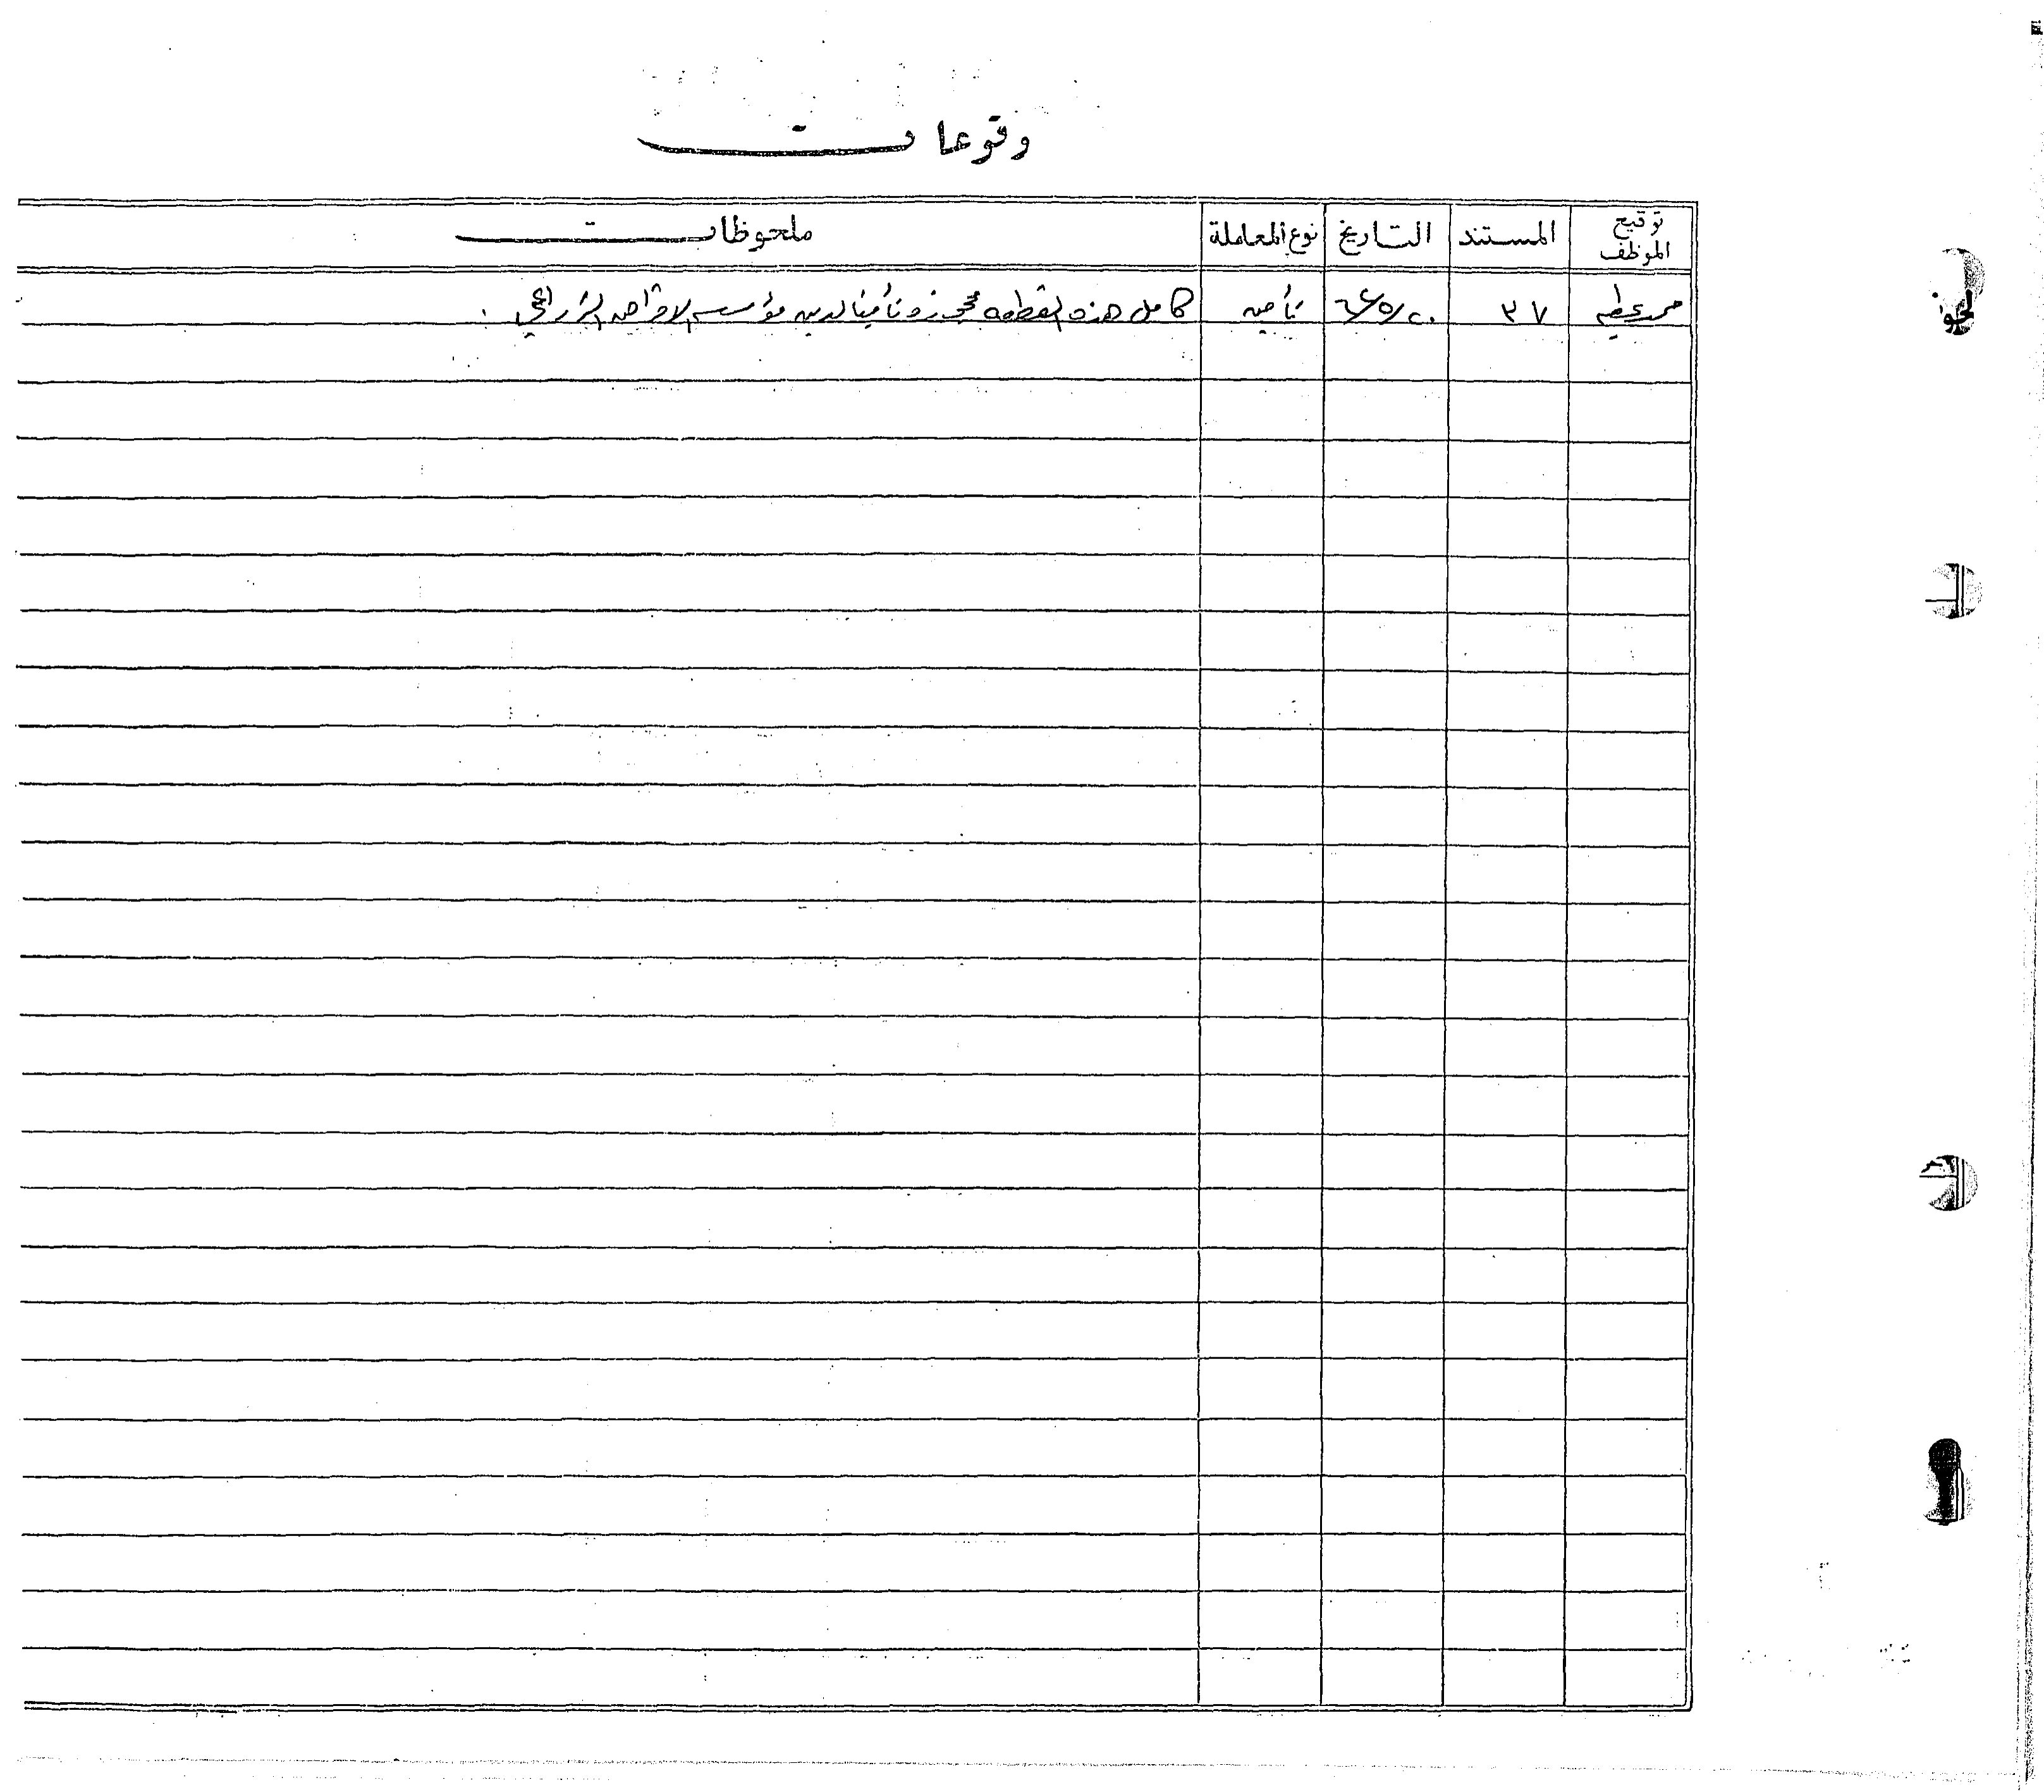 وقوعات
توقيع الموظف | المستند | التاريخ | نوع المعاملة | ملحوظات
٣٧ | ٦٤/٥/٢٠ | تأمين | كامل هذه القطعه محجوزه تأمينا لدين مؤسسة الاقراض الزراعي .